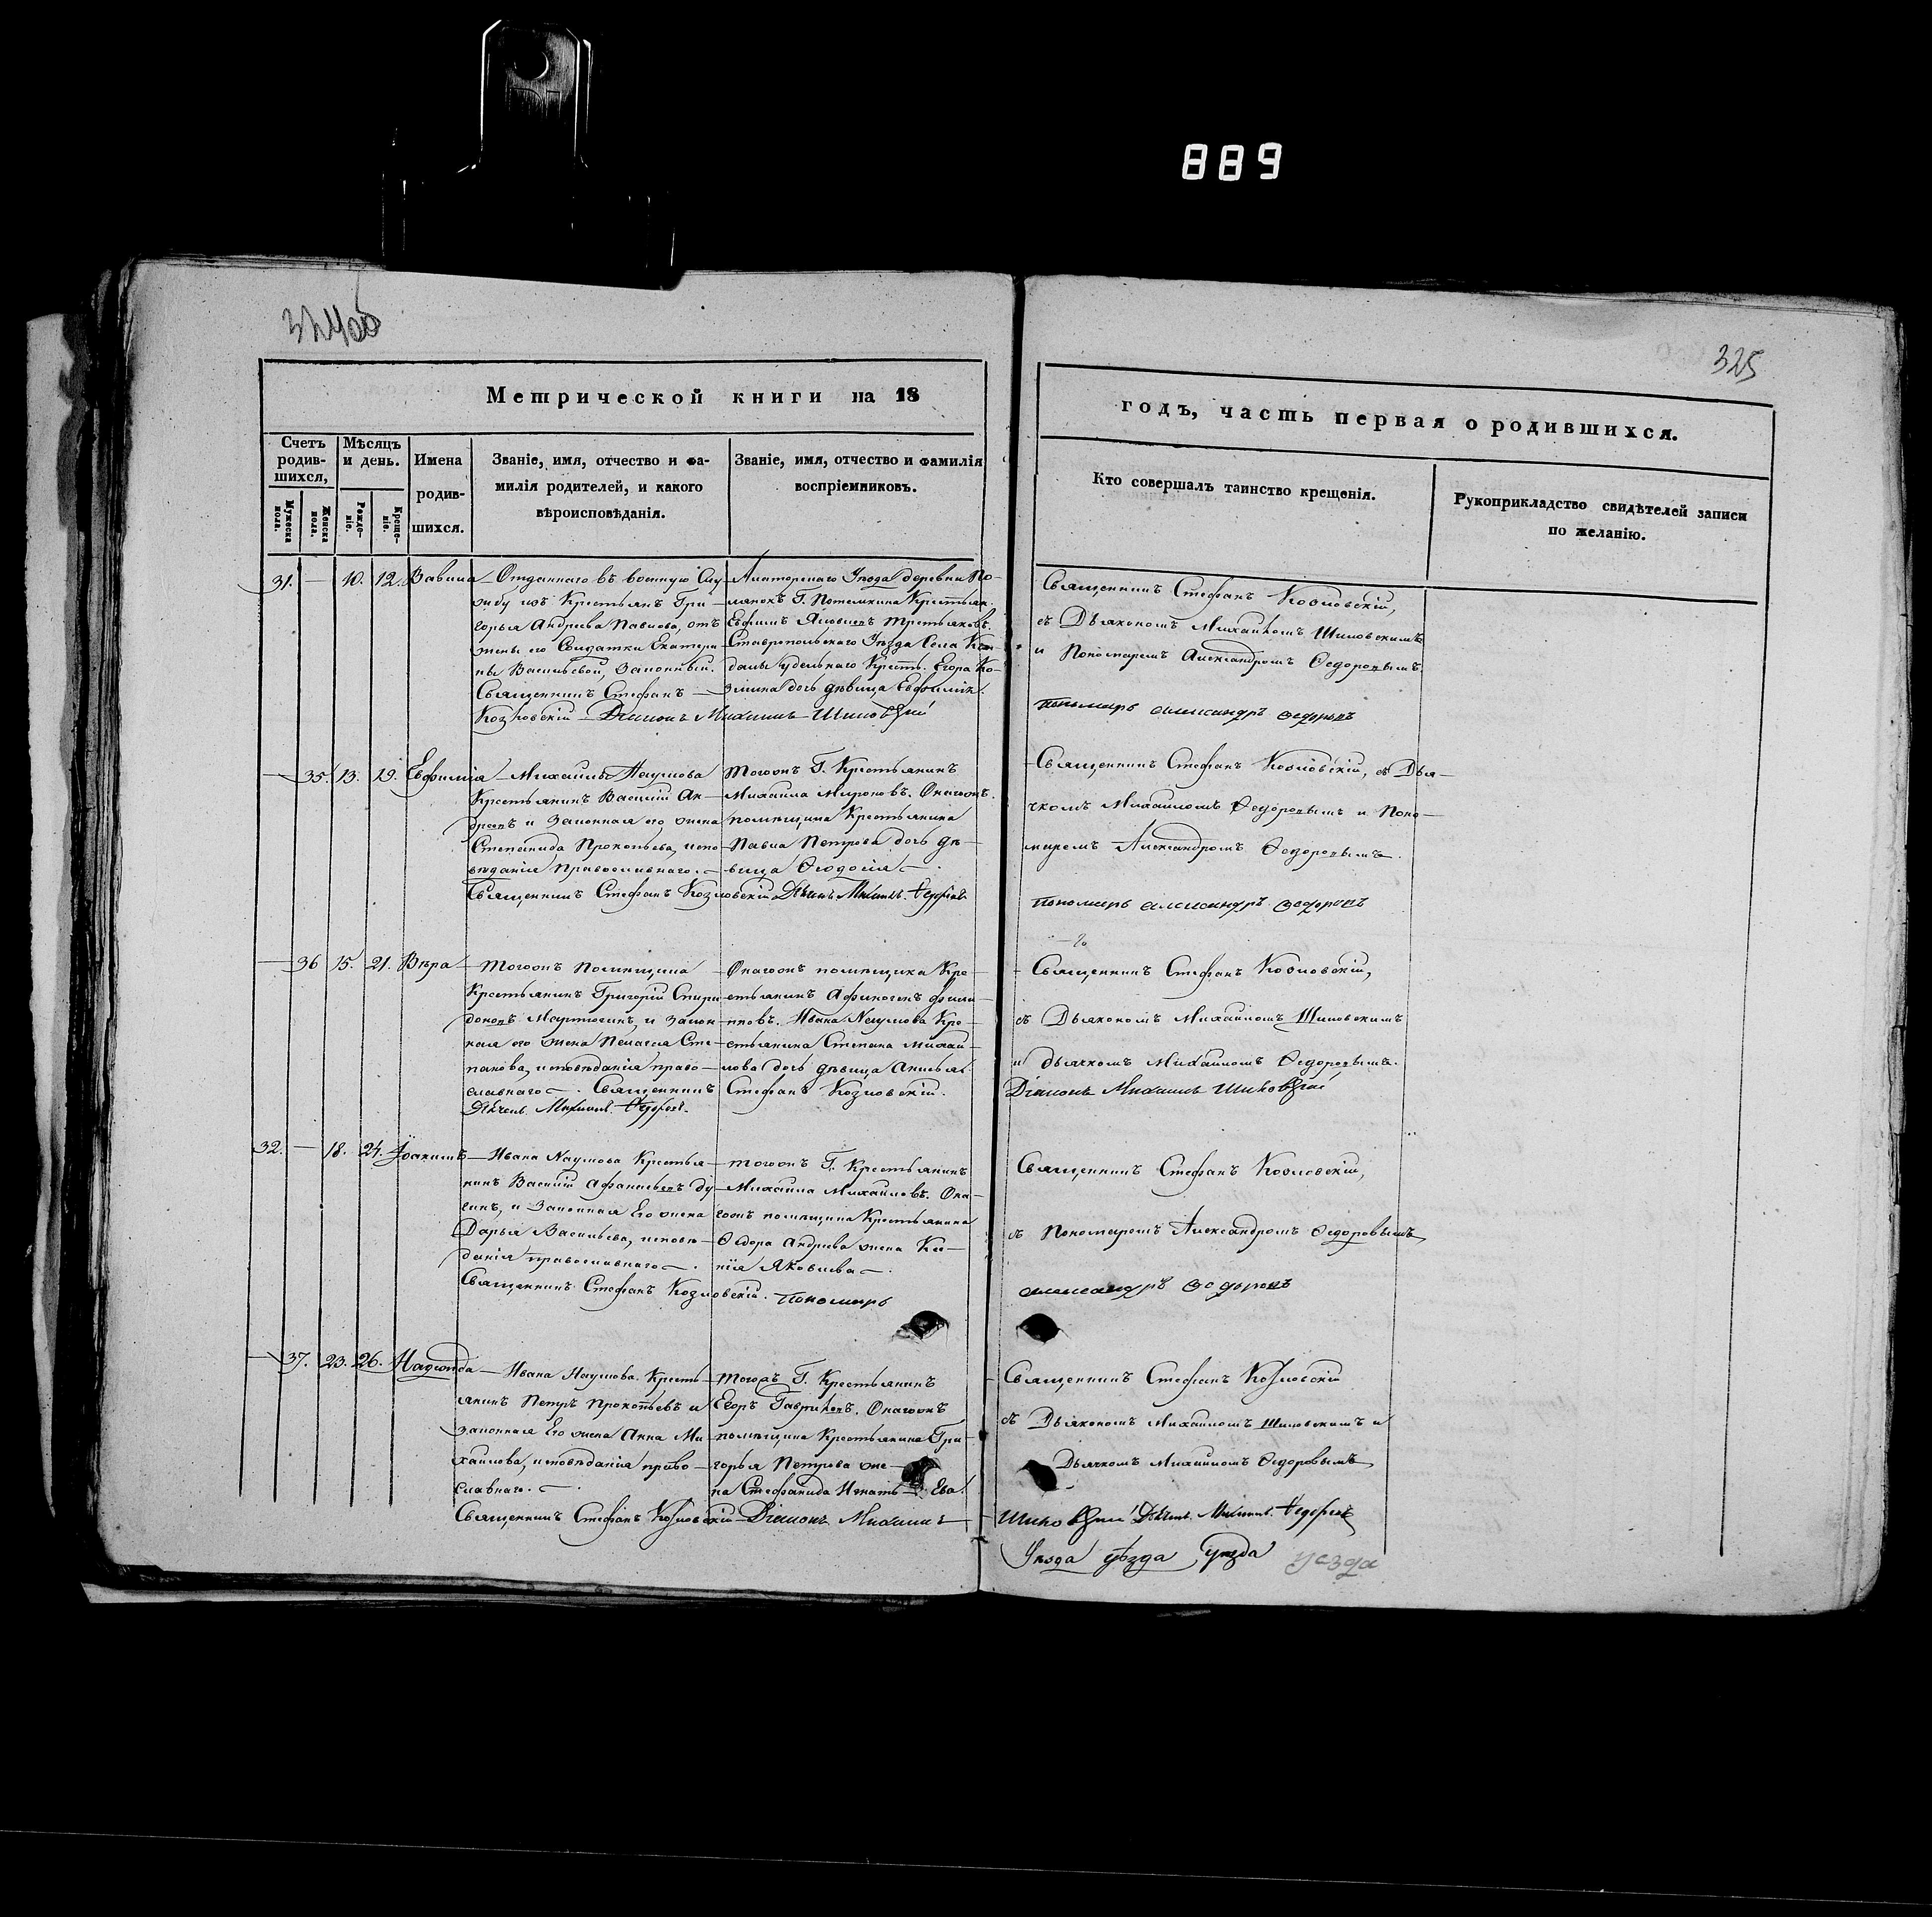 889
325
Метрической книги на 18
годъ, часть первая о родившихся.
Счетъ родив-шихся,
Мужеска пола.
Женска пола.
Мѣсяцъ и день.
Рожде-ніе.
Креще-ніе.
Имена
родив-
шихся.
Званіе, имя, отчество и фа-
милія родителей, и какого
вѣроисповѣданія.
Званіе, имя, отчество и фамилія
воспріемниковъ.
Кто совершалъ таинство крещенія.
Рукоприкладство свидѣтелей записи
по желанію.
31. — 10. 12. Вавила
Отданнаго въ военную Слу-
жбу изъ Крестьянъ Гри-
горья Андрѣева Павлова, отъ
жены его Солдатки Екатери-
ны Васильевой, Законный.
Священникъ Стефанъ
Козловскій Діаконъ Михаилъ Шиловскій
Алаторскаго Уѣзда деревни По-
лянокъ Г. Потемкина Крестьян.
Ефимъ Яковлевъ Третьяковъ.
Ставропольскаго Уѣзда Села
далы удѣльнаго Крест. Егора Ко-
змина дочь дѣвица Евфимія.
Священникъ Стефанъ Козловскій,
съ Дьякономъ Михаиломъ Шиловскимъ
и Пономаремъ Александромъ Ѳедоровымъ
пономарь александръ ѳедоровъ
— 35. 13. 19. Евфимія
Михаилы Наумова
Крестьянинъ Василій Ан-
дреевъ и Законная его жена
Степанида Прокопьева, испо-
вѣданія Православнаго.
Священникъ Стефанъ Козловскій Дьячекъ Михаилъ Ѳедоровъ
Тогожъ Г. Крестьянинъ
Михаила Мироновъ. Онагожъ
помѣщика Крестьянина
Павла Петрова дочь дѣ-
вица Ѳеодосія
Священникъ Стефанъ Козловскій, съ Дья-
чкомъ Михаиломъ Ѳедоровымъ и Поно-
маремъ Александромъ Ѳедоровымъ.
пономарь александръ ѳедоровъ
— 36 15. 21. Вѣра
Тогожъ Помѣщика
Крестьянинъ Григорій Спири-
доновъ Мартогинъ, и закон-
ная его жена Пелагея Сте-
панова, исповѣданія право-
славнаго. Священникъ Стефанъ Козловскій.
Дьячекъ Михаилъ Ѳедоровъ.
Онагожъ помѣщика Кре-
стьянинъ Афиногенъ Фили-
пповъ. Ивана Наумова Кре-
стьянина Степана Михай-
лова дочь дѣвица Анисья.
Священникъ Стефанъ Козловскій,
съ Дьякономъ Михаиломъ Шиловскимъ
и дьячкомъ Михаиломъ Ѳедоровымъ.
Діаконъ Михаилъ Шиловскій
32. — 18. 24. Іоакимъ
Ивана Наумова Крестья-
нинъ Василій Афанасьевъ
и Законная Его жена
Дарья Васильева, исповѣ-
данія православнаго.
Священникъ Стефанъ Козловскій. пономарь
тогожъ Г. Крестьянинъ
Михаила Михаиловъ. Она-
гожъ помѣщика Крестьянина
Ѳедора Андрѣева жена Ке-
нія Яковлева
Священникъ Стефанъ Козловскій,
съ Пономаремъ Александромъ Ѳедоровымъ
александръ ѳедоровъ
— 37. 23. 26. Надежда
Ивана Наумова Кресть-
янинъ Петръ Прокопьевъ и
законная Его жена Анна Ми-
хаилова, исповѣданія право-
славнаго.
Священникъ Стефанъ Козловскій Діаконъ Михаилъ
Тогожъ Г. Крестьянинъ
Егоръ Гавриловъ. Онагожъ
помѣщика Крестьянина Гри-
горья Петрова же-
на Стефанида Игнатьева
Священникъ Стефанъ Козловскій
съ Дьякономъ Михаиломъ Шиловскимъ и
Дьячкомъ Михаиломъ Ѳедоровымъ
Шиловскій Дьячекъ Михаилъ Ѳедоровъ
Уѣзда уѣзда уѣзда уезда